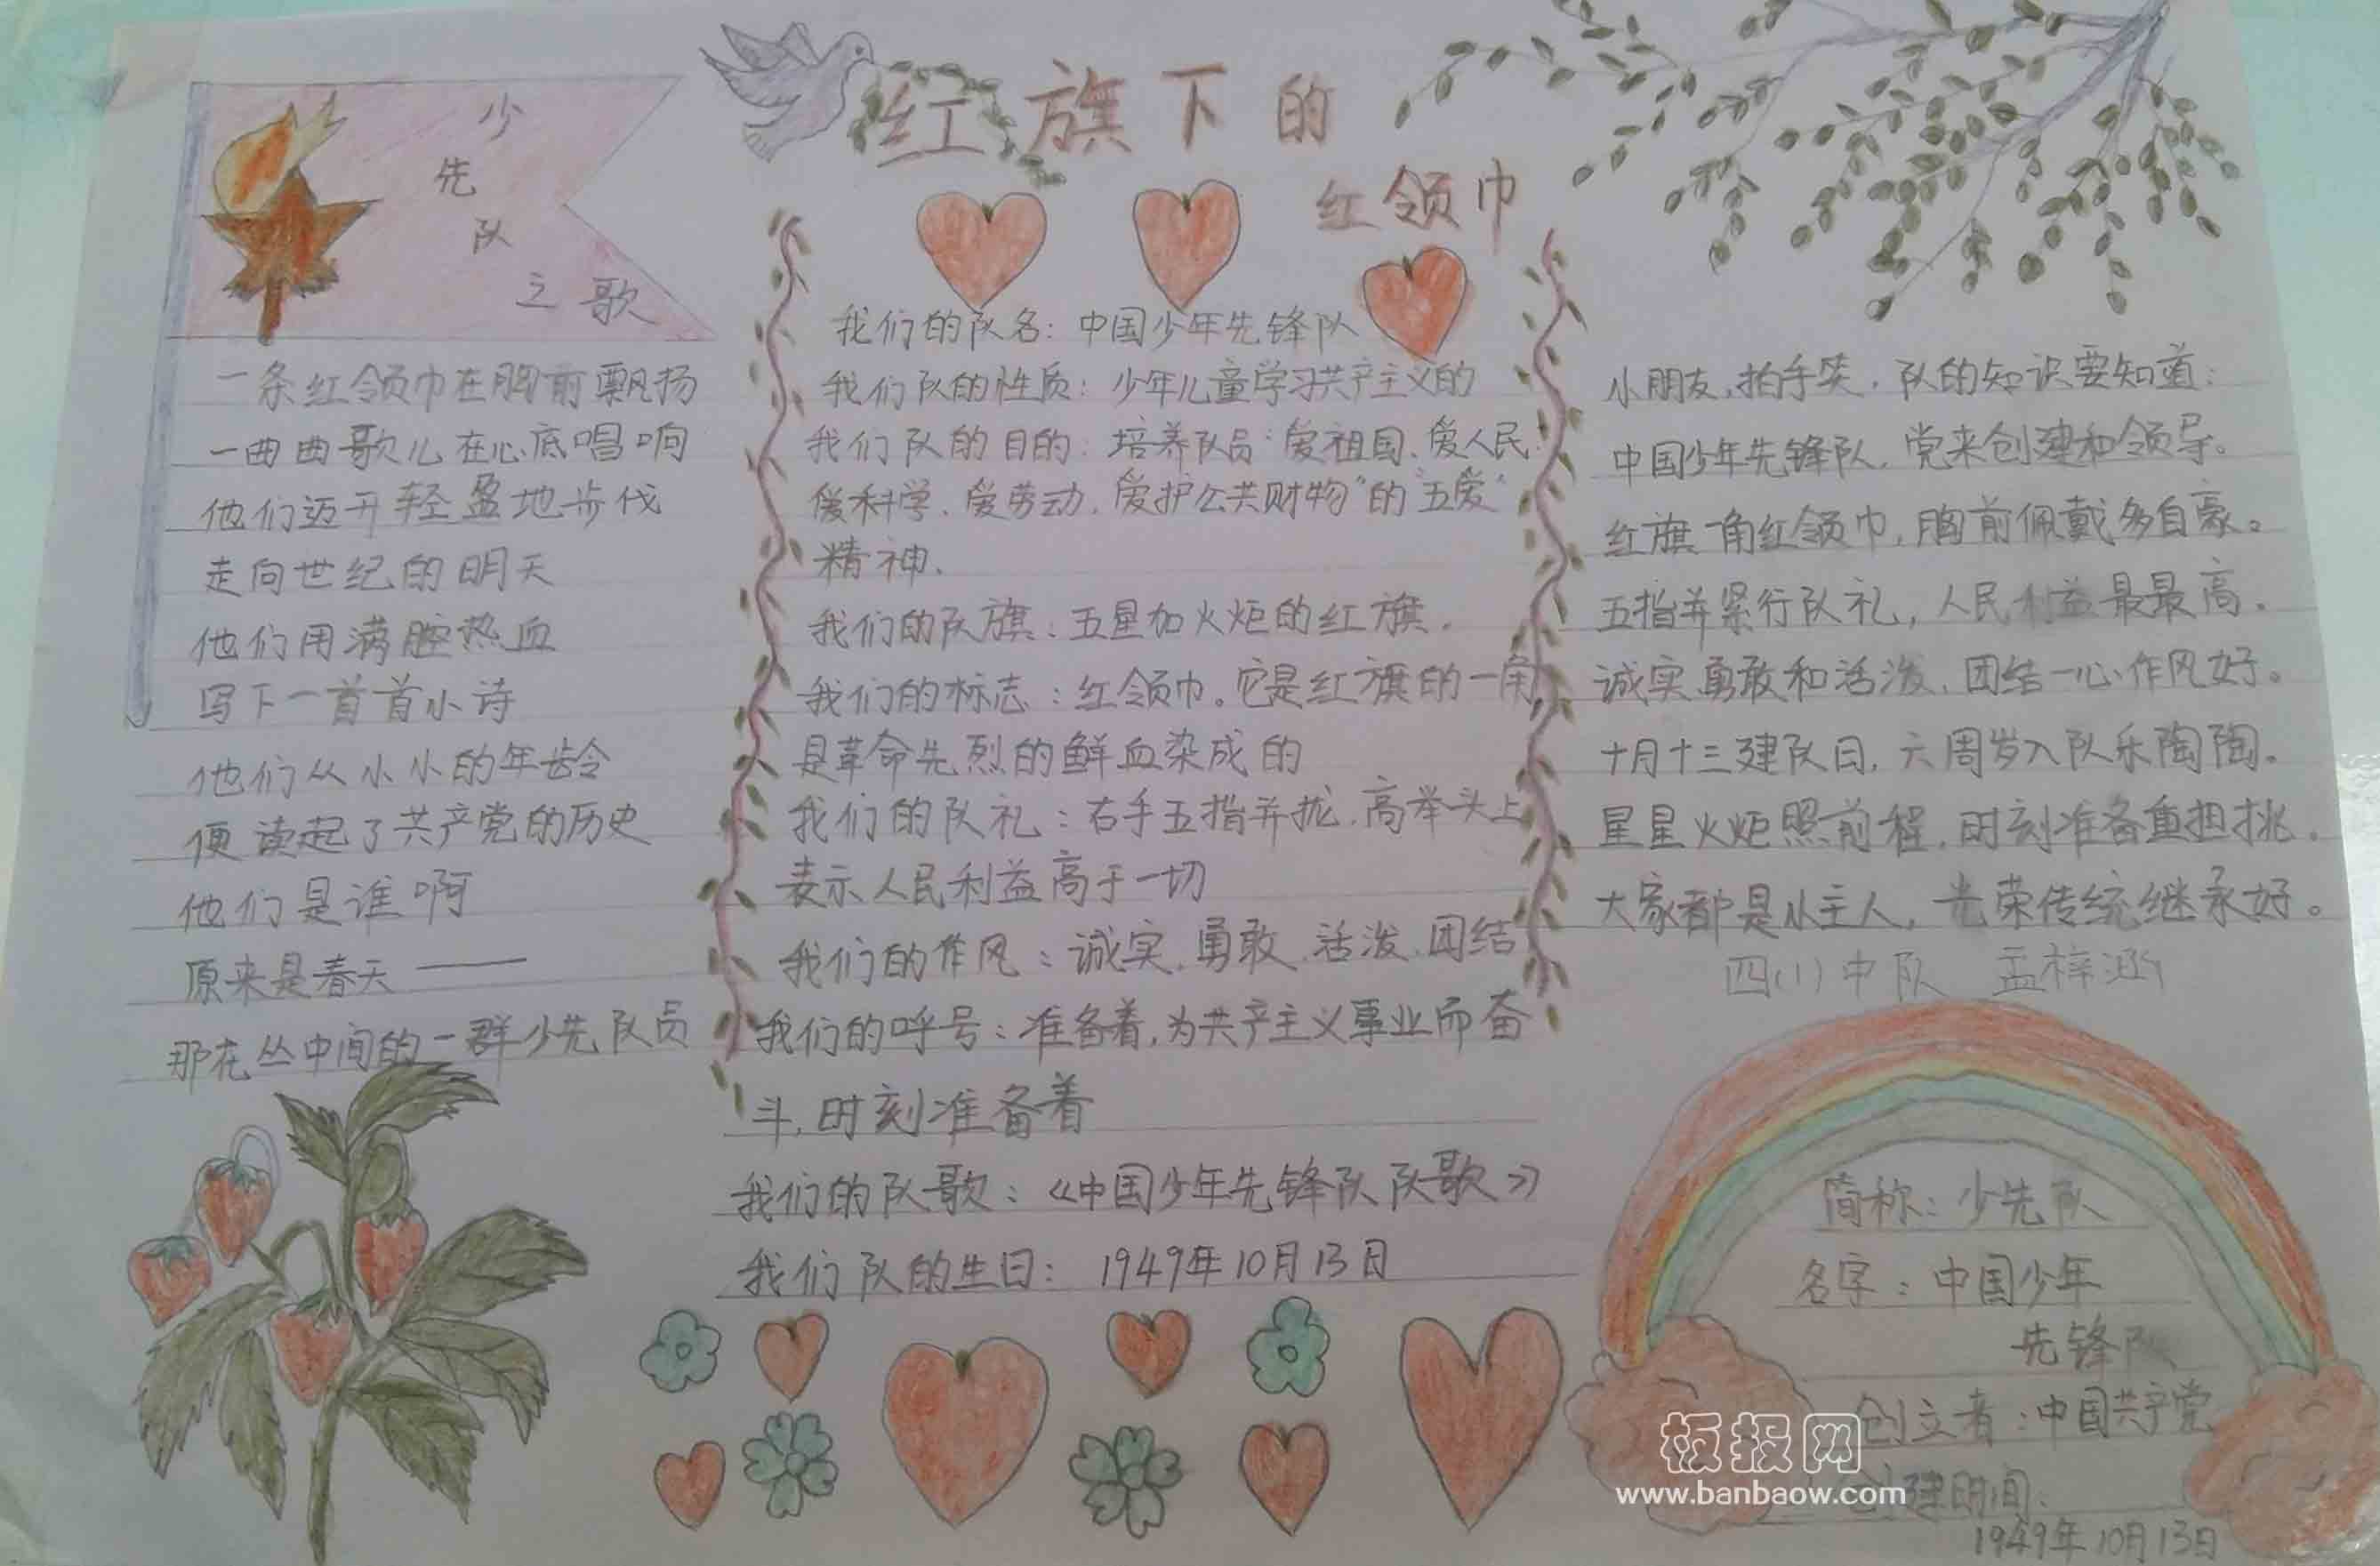 红旗下的
红领巾
少
先
队
之歌
一条红领巾在胸前飘扬
一曲曲歌儿在心底唱响
他们迈开轻盈地步伐
走向世纪的明天
他们用满腔热血
写下一首首小诗
他们从小小的年龄
便读起了共产党的历史
他们是谁啊
原来是春天——
那花丛中间的一群少先队员
我们的队名：中国少年先锋队
我们队的性质：少年儿童学习共产主义的
我们队的目的：培养队员“爱祖国、爱人民
爱科学、爱劳动、爱护公共财物”的“五爱”
精神、
我们的队旗：五星加火炬的红旗。
我们的标志：红领巾。它是红旗的一角
是革命先烈的鲜血染成的
我们的队礼：右手五指并拢，高举头上
表示人民利益高于一切
我们的作风：诚实、勇敢、活泼、团结
我们的呼号：准备着，为共产主义事业而奋
斗，时刻准备着
我们的队歌：《中国少年先锋队队歌》
我们队的生日：1949年10月13日
小朋友，拍手笑，队的知识要知道：
中国少年先锋队，党来创建和领导。
红旗一角红领巾，胸前佩戴多自豪。
五指并紧行队礼，人民利益最最高。
诚实勇敢和活泼，团结一心作风好。
十月十三建队日，六周岁入队乐陶陶。
星星火炬照前程，时刻准备重担挑。
大家都是小主人，光荣传统继承好。
四(1)中队 孟梓涵
简称：少先队
名字：中国少年
先锋队
创立者：中国共产党
创建时间：
1949年10月13日
板报网
www.banbaow.com